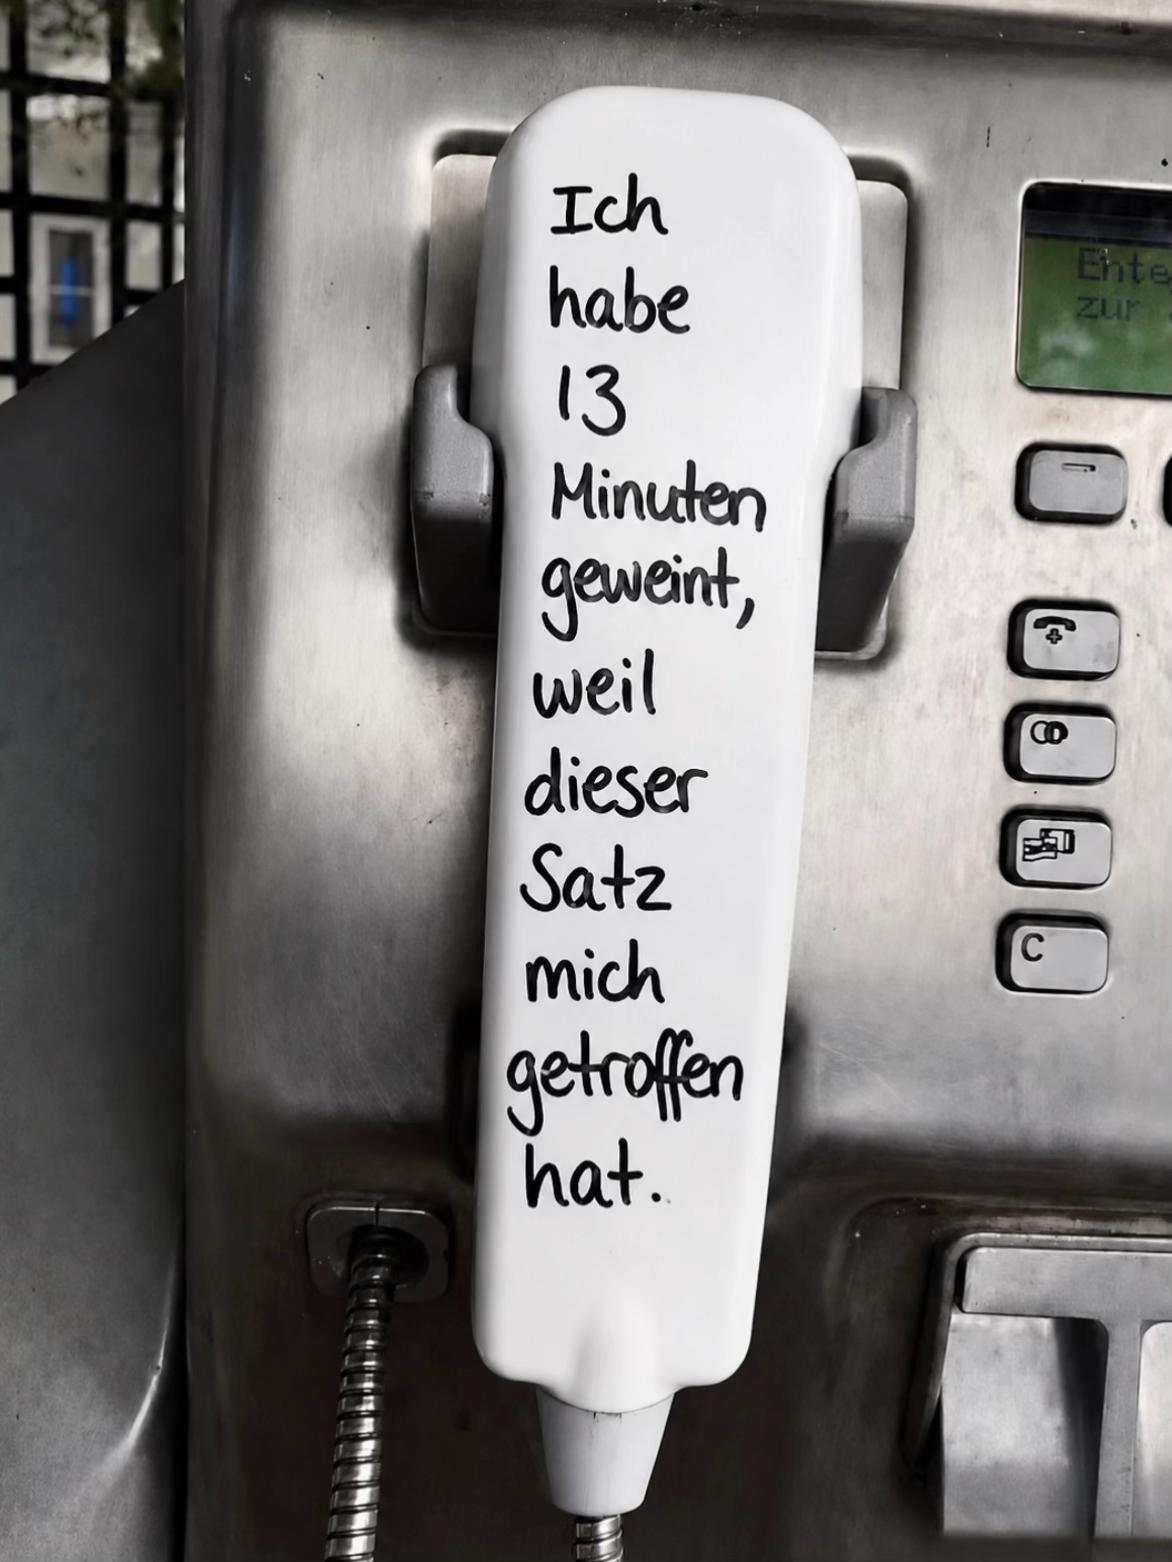 Ich
habe
13
Minuten
geweint,
weil
dieser
Satz
mich
getroffen
hat.
zur
C